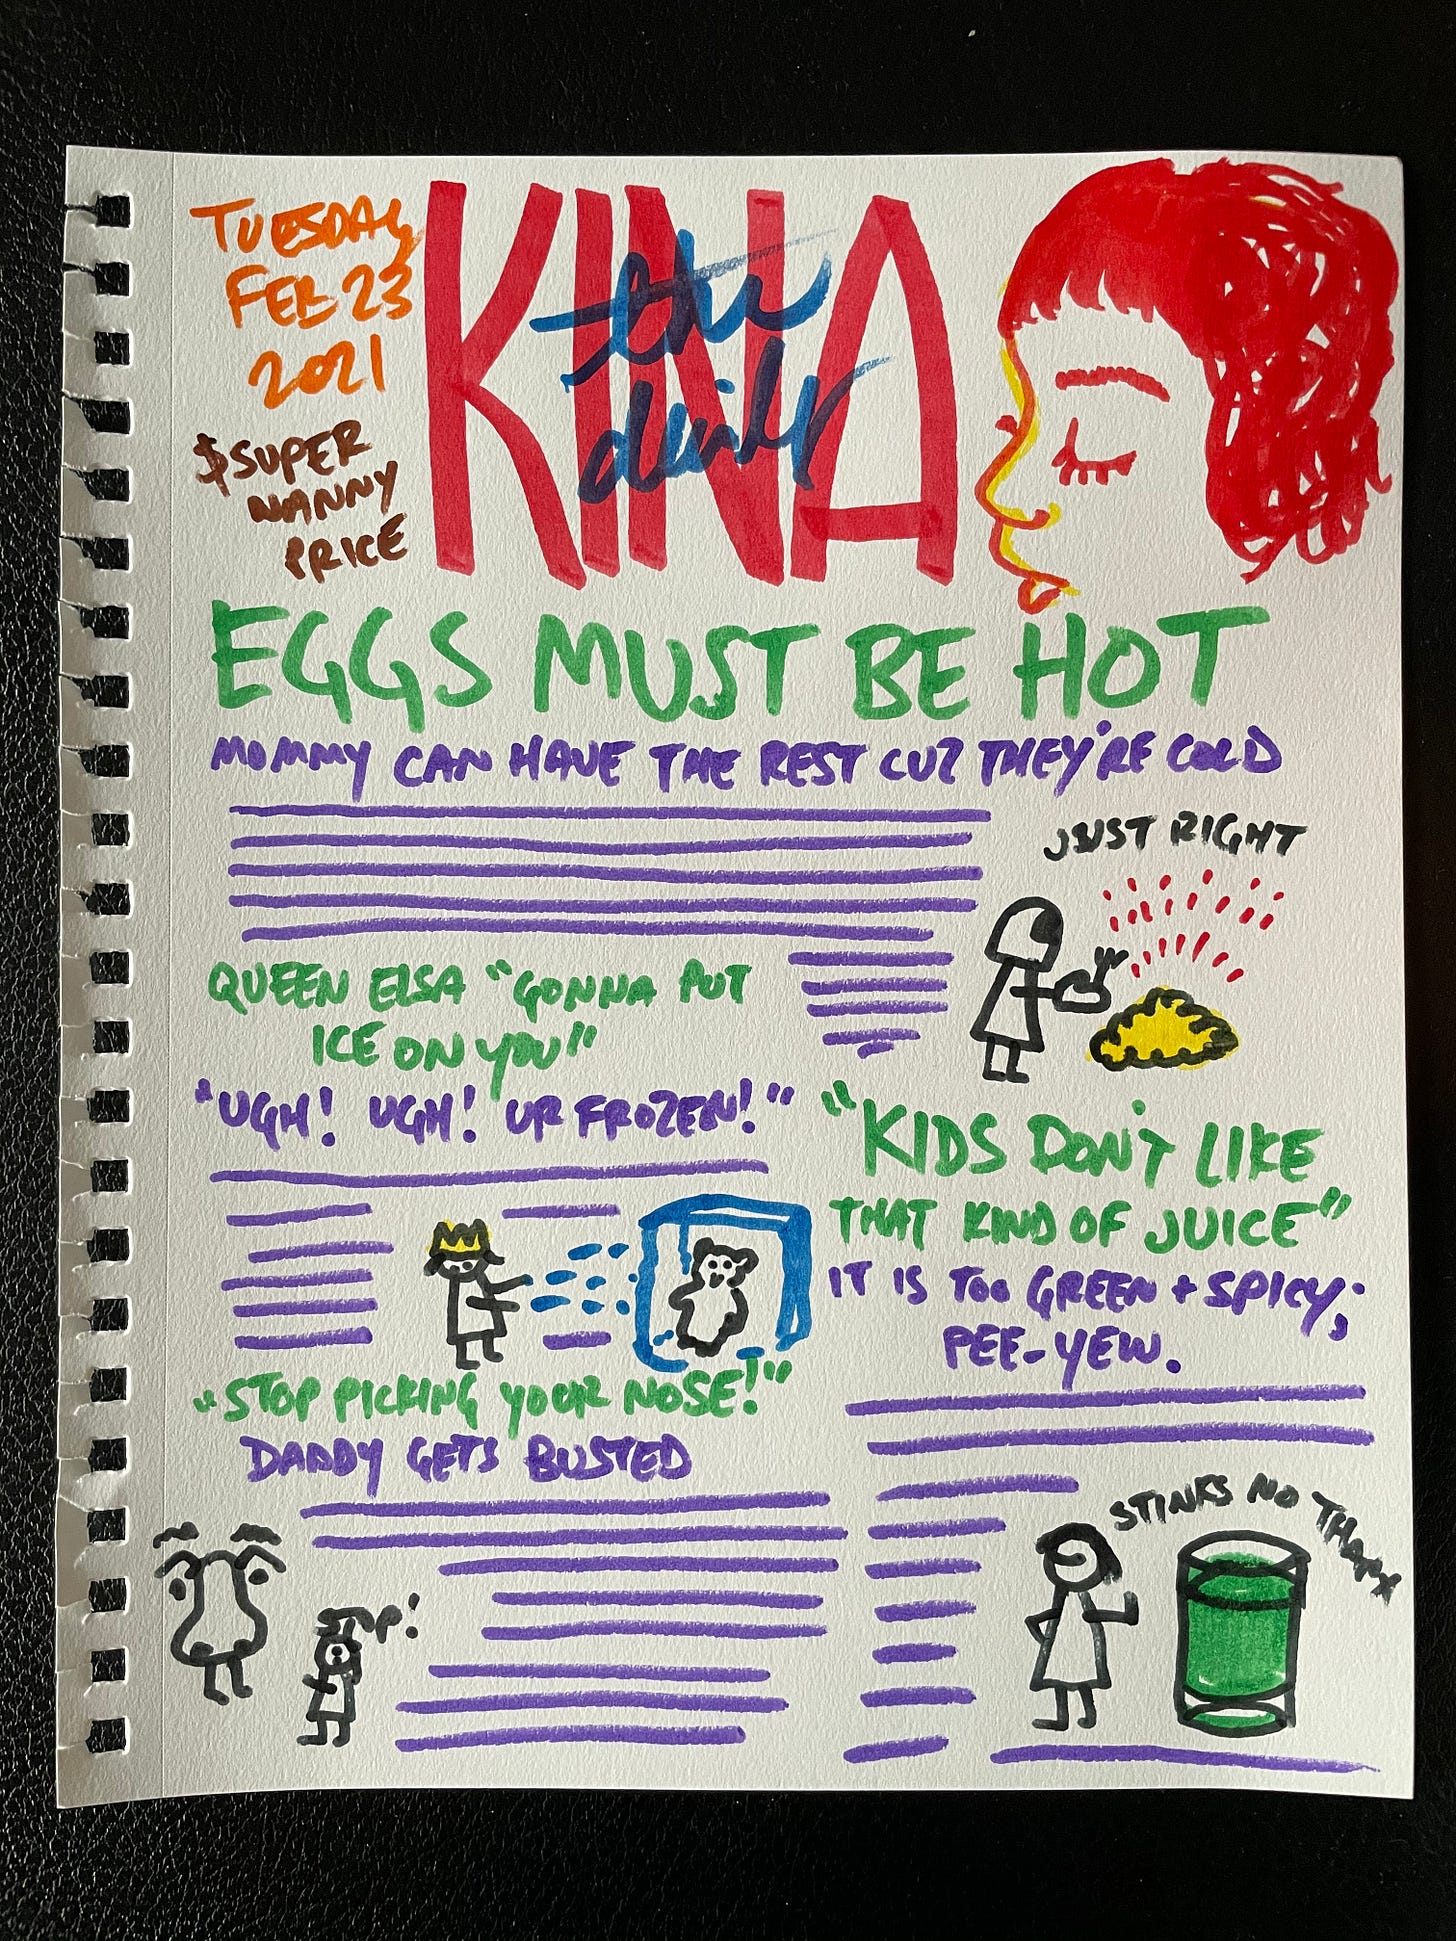 TUESDAY
FEB 23
2021
$SUPER
NANNY
PRICE
KINA
the
daily
EGGS MUST BE HOT
MOMMY CAN HAVE THE REST CUZ THEY'RE COLD
JUST RIGHT
QUEEN ELSA "GONNA PUT
ICE ON YOU"
"UGH! UGH! UR FROZEN!"
"STOP PICKING YOUR NOSE!"
DADDY GETS BUSTED
STOP!
"KIDS DON'T LIKE
THAT KIND OF JUICE"
IT IS TOO GREEN + SPICY;
PEE-YEW.
STINKS NO THANX